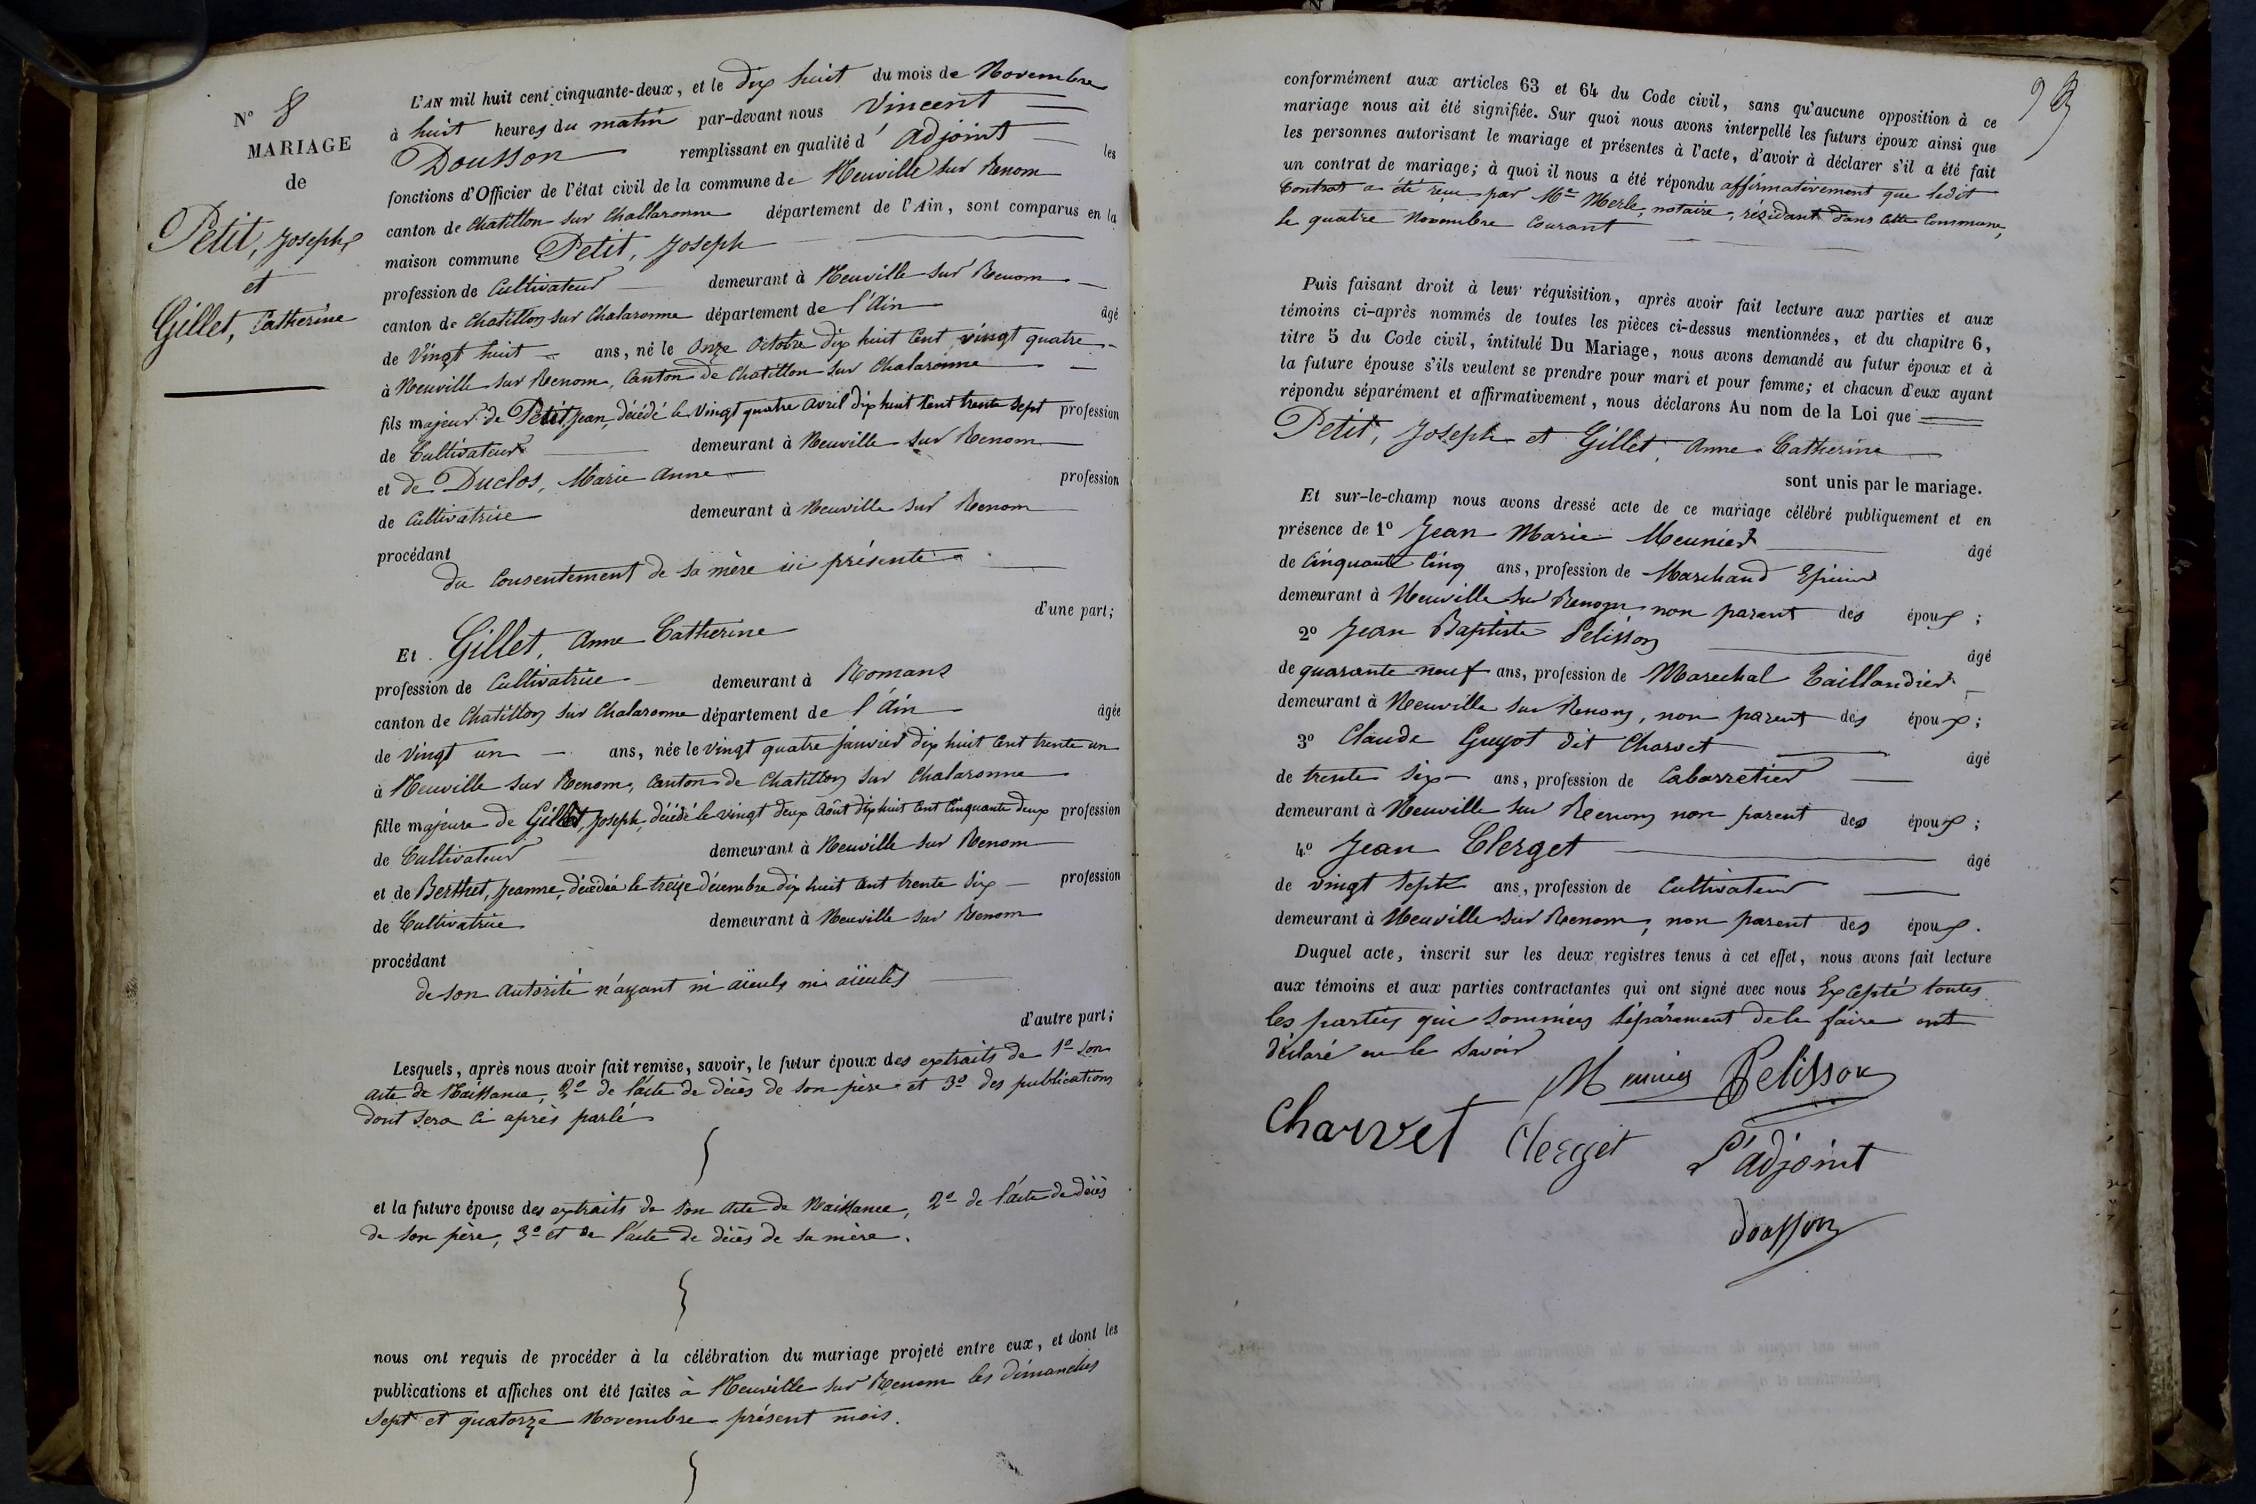 N° 8
MARIAGE
de
Petit, Joseph,
et
Gillet, Catherine
L'AN mil huit cent cinquante-deux, et le dix huit du mois de Novembre
à huit heures du matin par-devant nous Vincent
Dousson remplissant en qualité d' adjoint les
fonctions d'Officier de l'état civil de la commune de Neuville sur Renom
canton de Chatillon sur Challaronne département de l'Ain, sont comparus en la
maison commune Petit, Joseph
profession de Cultivateur demeurant à Neuville sur Renom
canton de Chatillon sur Chalaronne département de l'Ain âgé
de vingt huit ans, né le onze octobre dix huit cent vingt quatre
à Neuville sur Renom, Canton de Chatillon sur Chalaronne
fils majeur de Petit, Jean, décédé le vingt quatre avril dix huit cent trente sept profession
de Cultivateur demeurant à Neuville sur Renom
et de Duclos, Marie Anne profession
de Cultivatrice demeurant à Neuville sur Renom
procédant
du consentement de sa mère ici présente
d'une part;
Et Gillet, Anne Catherine
profession de Cultivatrice demeurant à Romans
canton de Chatillon sur Chalaronne département de l'Ain âgée
de vingt un ans, née le vingt quatre janvier dix huit cent trente un
à Neuville sur Renom, canton de Chatillon sur Chalaronne
fille majeure de Gillet, Joseph, décédé le vingt deux août dix huit cent cinquante deux profession
de Cultivateur demeurant à Neuville sur Renom
et de Berthet, Jeanne, décédée le treize décembre dix huit cent trente six profession
de Cultivatrice demeurant à Neuville sur Renom
procédant
de son autorité n'ayant ni aïeuls ni aïeules
d'autre part;
Lesquels, après nous avoir fait remise, savoir, le futur époux des extraits de 1° son
acte de Naissance, 2° de l'acte de décès de son père et 3° des publications
dont sera ci après parlé
et la future épouse des extraits de son acte de Naissance, 2° de l'acte de décès
de son père, 3° et de l'acte de décès de sa mère.
nous ont requis de procéder à la célébration du mariage projeté entre eux, et dont les
publications et affiches ont été faites à Neuville sur Renom les dimanches
sept et quatorze Novembre présent mois.
93
conformément aux articles 63 et 64 du Code civil, sans qu'aucune opposition à ce
mariage nous ait été signifiée. Sur quoi nous avons interpellé les futurs époux ainsi que
les personnes autorisant le mariage et présentes à l'acte, d'avoir à déclarer s'il a été fait
un contrat de mariage; à quoi il nous a été répondu affirmativement que ledit
Contrat a été reçu par Me Merle, notaire, résidant dans cette Commune,
le quatre Novembre Courant
Puis faisant droit à leur réquisition, après avoir fait lecture aux parties et aux
témoins ci-après nommés de toutes les pièces ci-dessus mentionnées, et du chapitre 6,
titre 5 du Code civil, intitulé Du Mariage, nous avons demandé au futur époux et à
la future épouse s'ils veulent se prendre pour mari et pour femme; et chacun d'eux ayant
répondu séparément et affirmativement, nous déclarons Au nom de la Loi que
Petit, Joseph et Gillet, Anne Catherine
sont unis par le mariage.
Et sur-le-champ nous avons dressé acte de ce mariage célébré publiquement et en
présence de 1° Jean Marie Meunier âgé
de cinquante cinq ans, profession de Marchand Epicier
demeurant à Neuville sur Renom non parent des époux;
2° Jean Baptiste Pelisson âgé
de quarante neuf ans, profession de Marechal Taillandier
demeurant à Neuville sur Renom, non parent des époux;
3° Claude Guyot dit Charvet âgé
de trente six ans, profession de Cabarretier
demeurant à Neuville sur Renom non parent des époux;
4° Jean Clerget âgé
de vingt sept ans, profession de Cultivateur
demeurant à Neuville sur Renom, non parent des époux.
Duquel acte, inscrit sur les deux registres tenus à cet effet, nous avons fait lecture
aux témoins et aux parties contractantes qui ont signé avec nous Excepté toutes
les parties qui sommées séparément de le faire ont
déclaré ne le savoir
Meunier Pelisson
Charvet Clerget L'adjoint
dousson